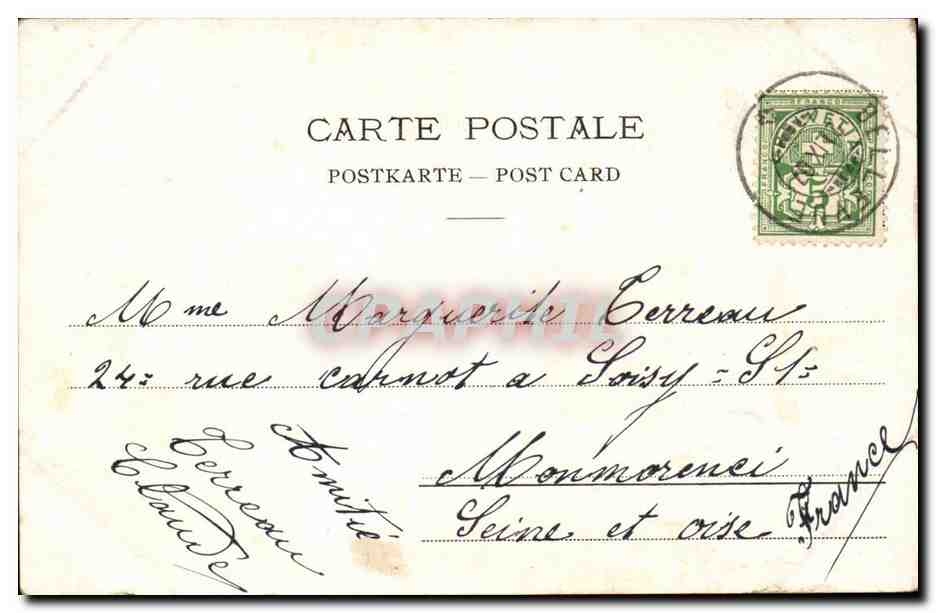 CARTE POSTALE
POSTKARTE — POST CARD
FRANCO
HELVETIA
5
Mme Marguerite Terreau
24= rue carnot a Soisy-S/s=
Monmorenci
Seine et oise
France
Amitié
Terreau
Claude